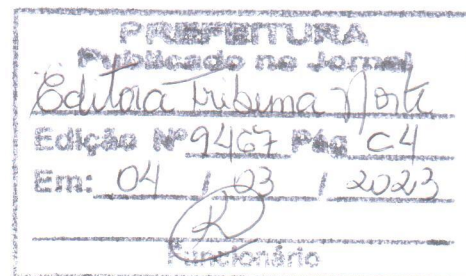 PREFEITURA
Publicado no Jornal
Editora Tribuna Norte
Edição Nº 9467 Pág C4
Em: 04 / 03 / 2023
Funcionário